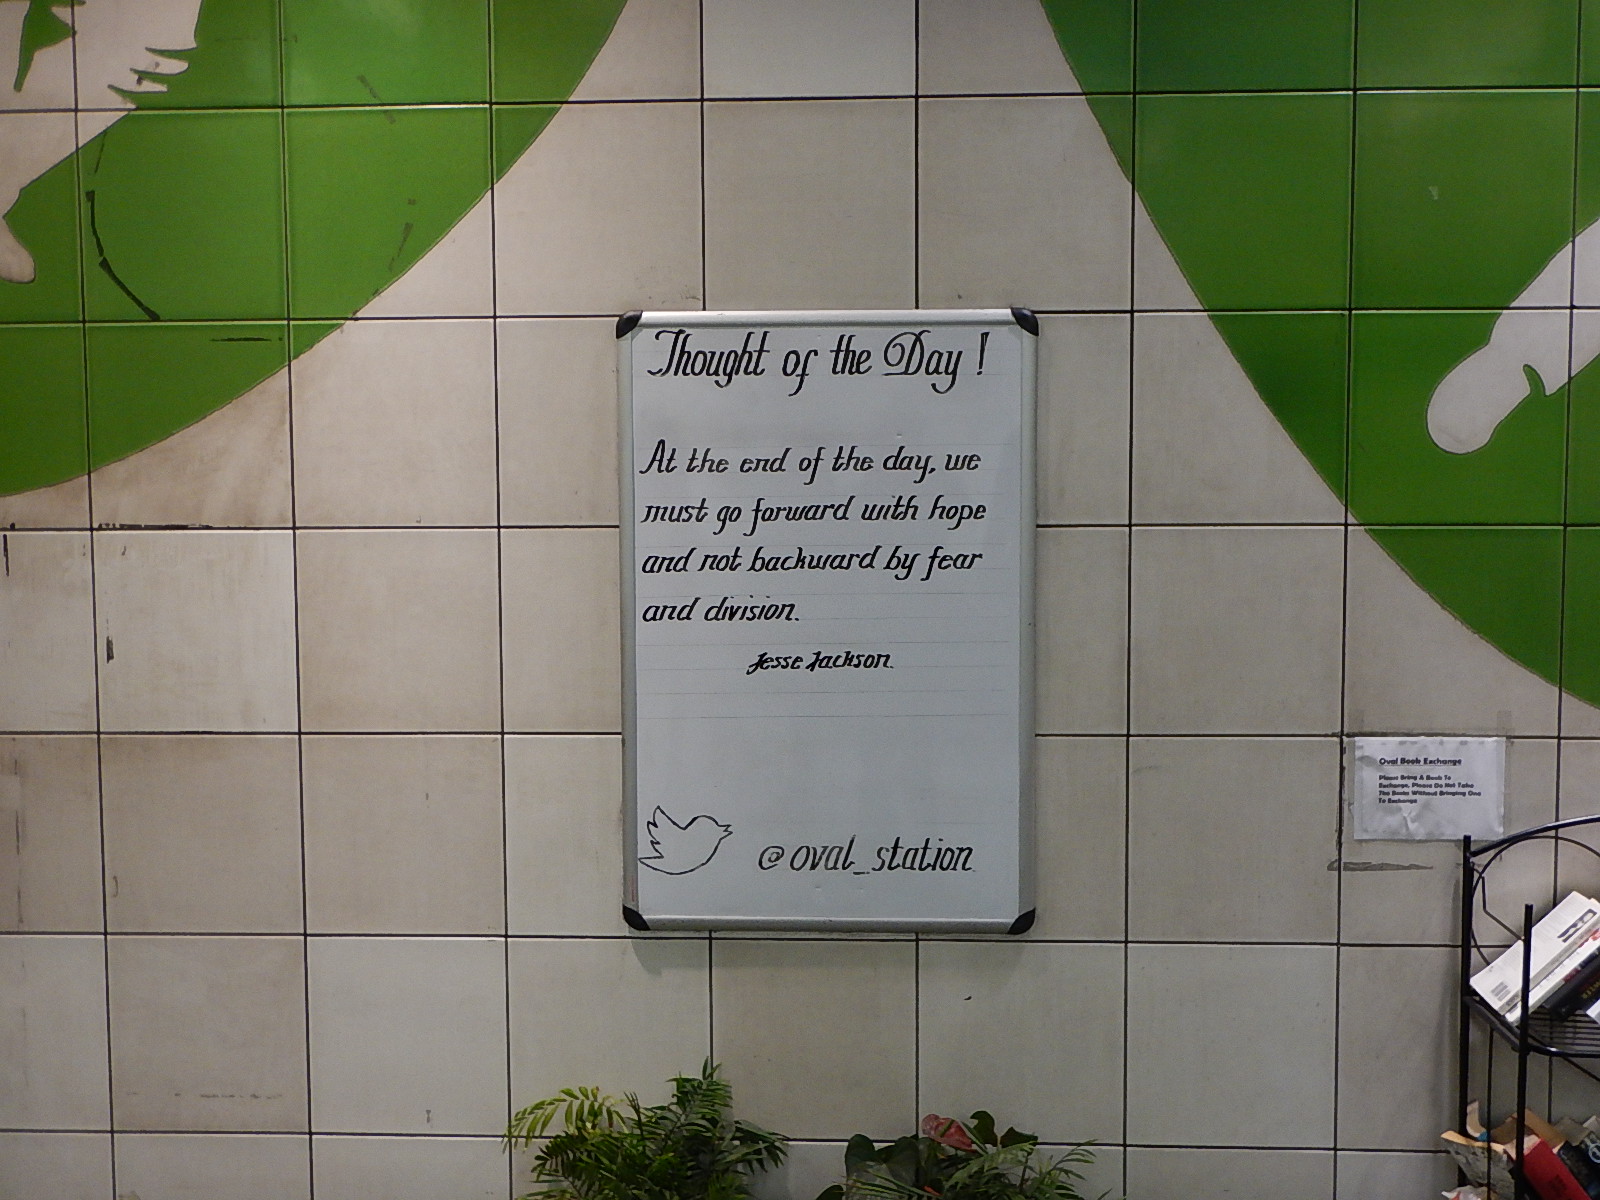 Thought of the Day !
At the end of the day, we
must go forward with hope
and not backward by fear
and division.
Jesse Jackson.
@oval_station
Oval Book Exchange
Please Bring A Book To
Exchange, Please Do Not Take
The Books Without Bringing One
To Exchange